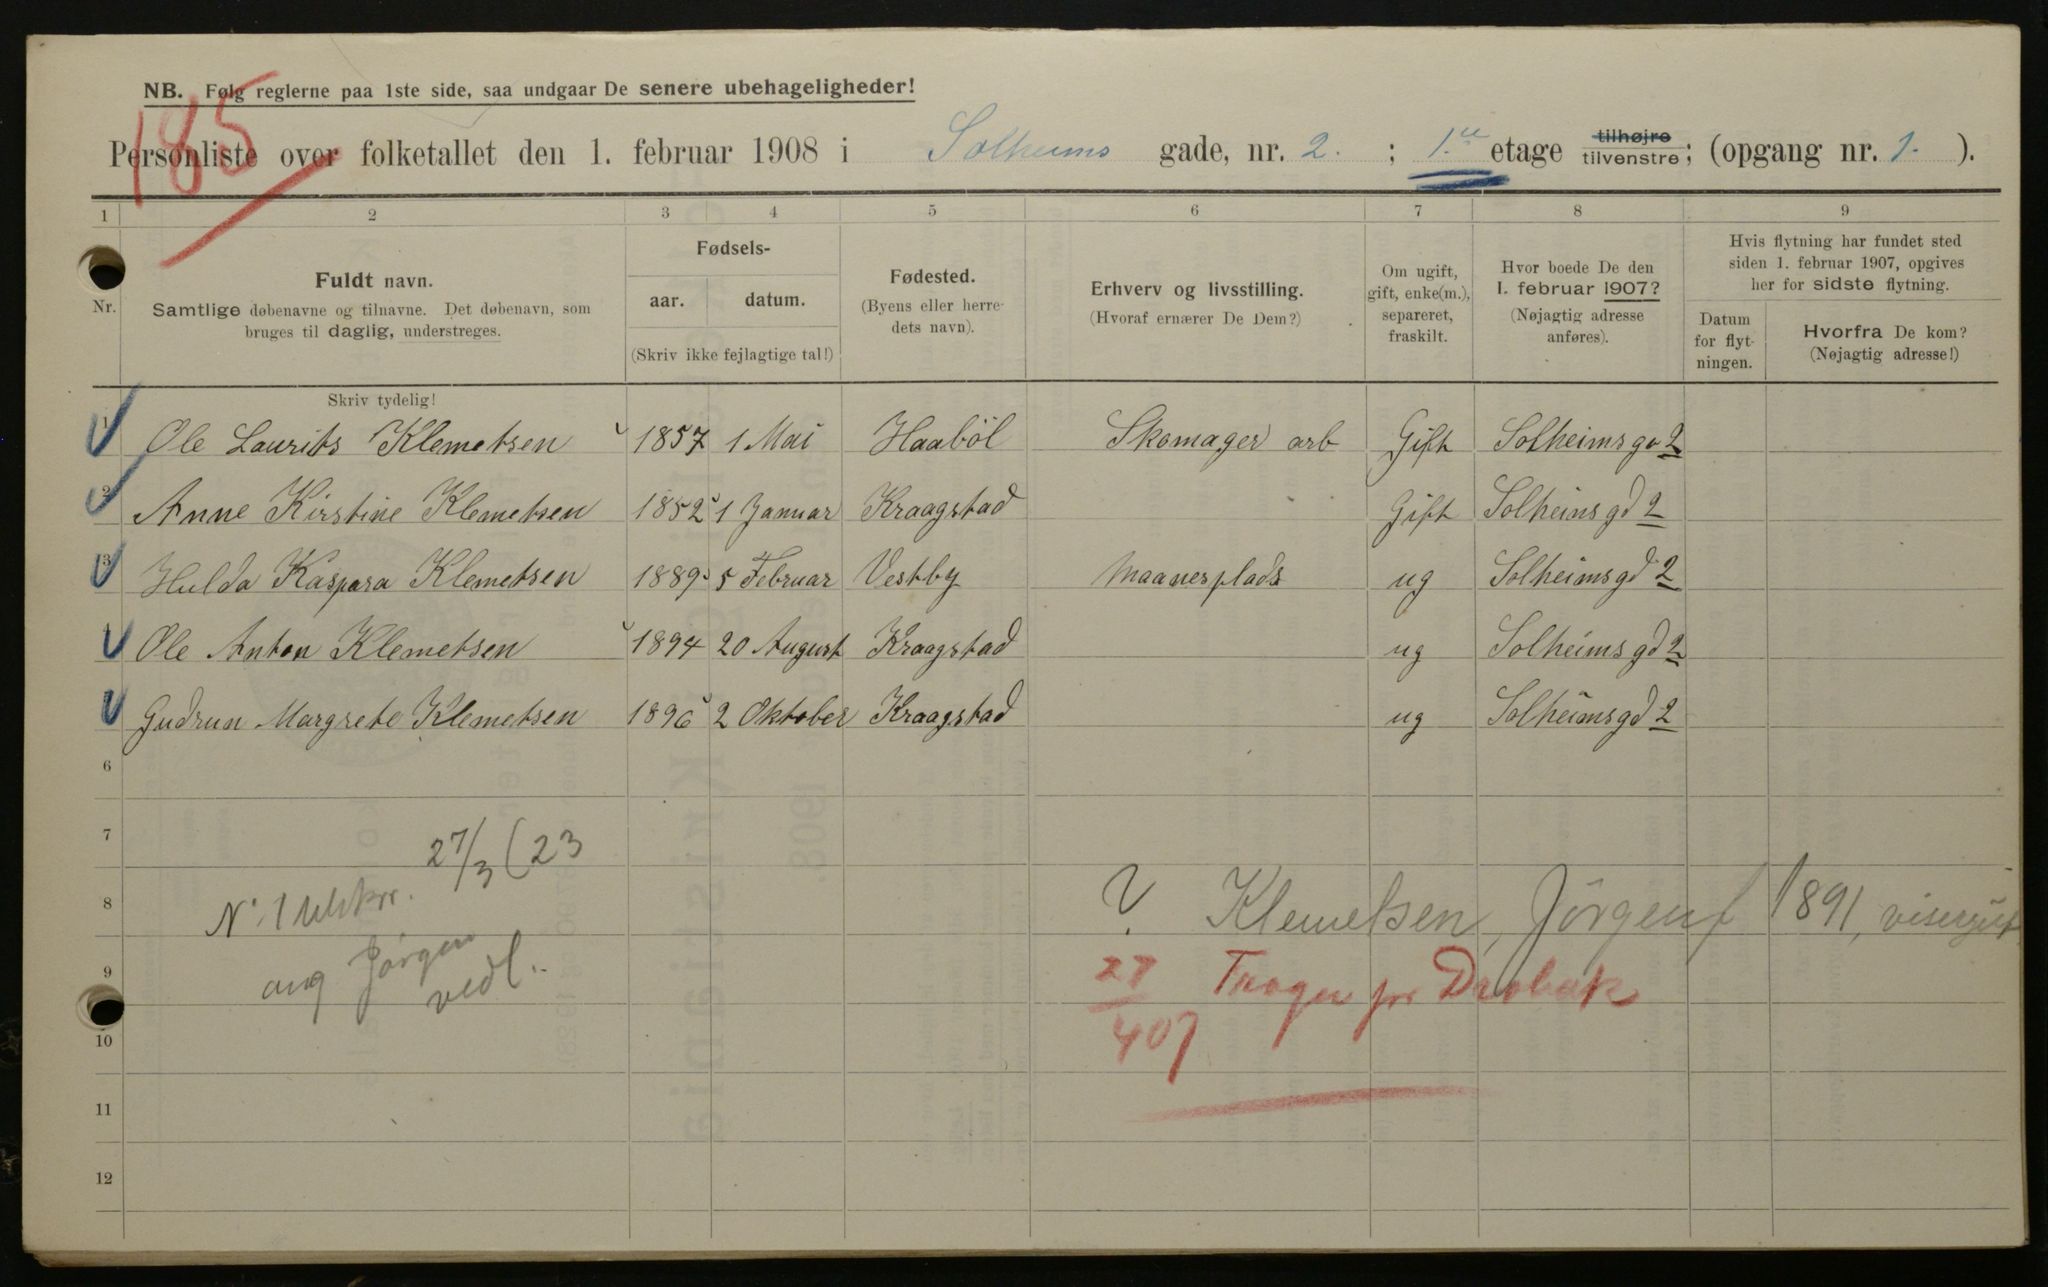 NB. Følg reglerne paa 1ste side, saa undgaar De senere ubehageligheder!
185
Personliste over folketallet den 1. februar 1908 i Solheims gade, nr. 2. ; 1.ste etage tilhøjre tilvenstre; (opgang nr. 1. ).
1 2 3 4 5 6 7 8 9
Nr.
Fuldt navn.
Samtlige døbenavne og tilnavne. Det døbenavn, som
bruges til daglig, understreges.
Fødsels-
aar. datum.
(Skriv ikke fejlagtige tal!)
Fødested.
(Byens eller herre-
dets navn).
Erhverv og livsstilling.
(Hvoraf ernærer De Dem?)
Om ugift,
gift, enke(m.),
separeret,
fraskilt.
Hvor boede De den
1. februar 1907?
(Nøjagtig adresse
anføres).
Hvis flytning har fundet sted
siden 1. februar 1907, opgives
her for sidste flytning.
Datum
for flyt-
ningen.
Hvorfra De kom?
(Nøjagtig adresse!)
Skriv tydelig!
1 Ole Laurits Klemetsen 1857 1 Mai Haaböl Skomager arb Gift Solheimsga 2
2 Anne Kirstine Klemetsen 1852 1 Januar Kraagstad Gift Solheimsgd 2
3 Hulda Kaspara Klemetsen 1889 5 Februar Vestby Maanesplads ug Solheimsgd 2
Ole Anton Klemetsen 1894 20 August Kraagstad ug Solheimsgd 2
Gudrun Margrete Klemetsen 1896 2 Oktober Kraagstad ug Solheimsgd 2
6
7
27/3 (23
8 N. 1 ? Klemetsen, Jörgen f 1891,
9 ang Jørgen 27 Drøbak
vedl.
10 407
11
12